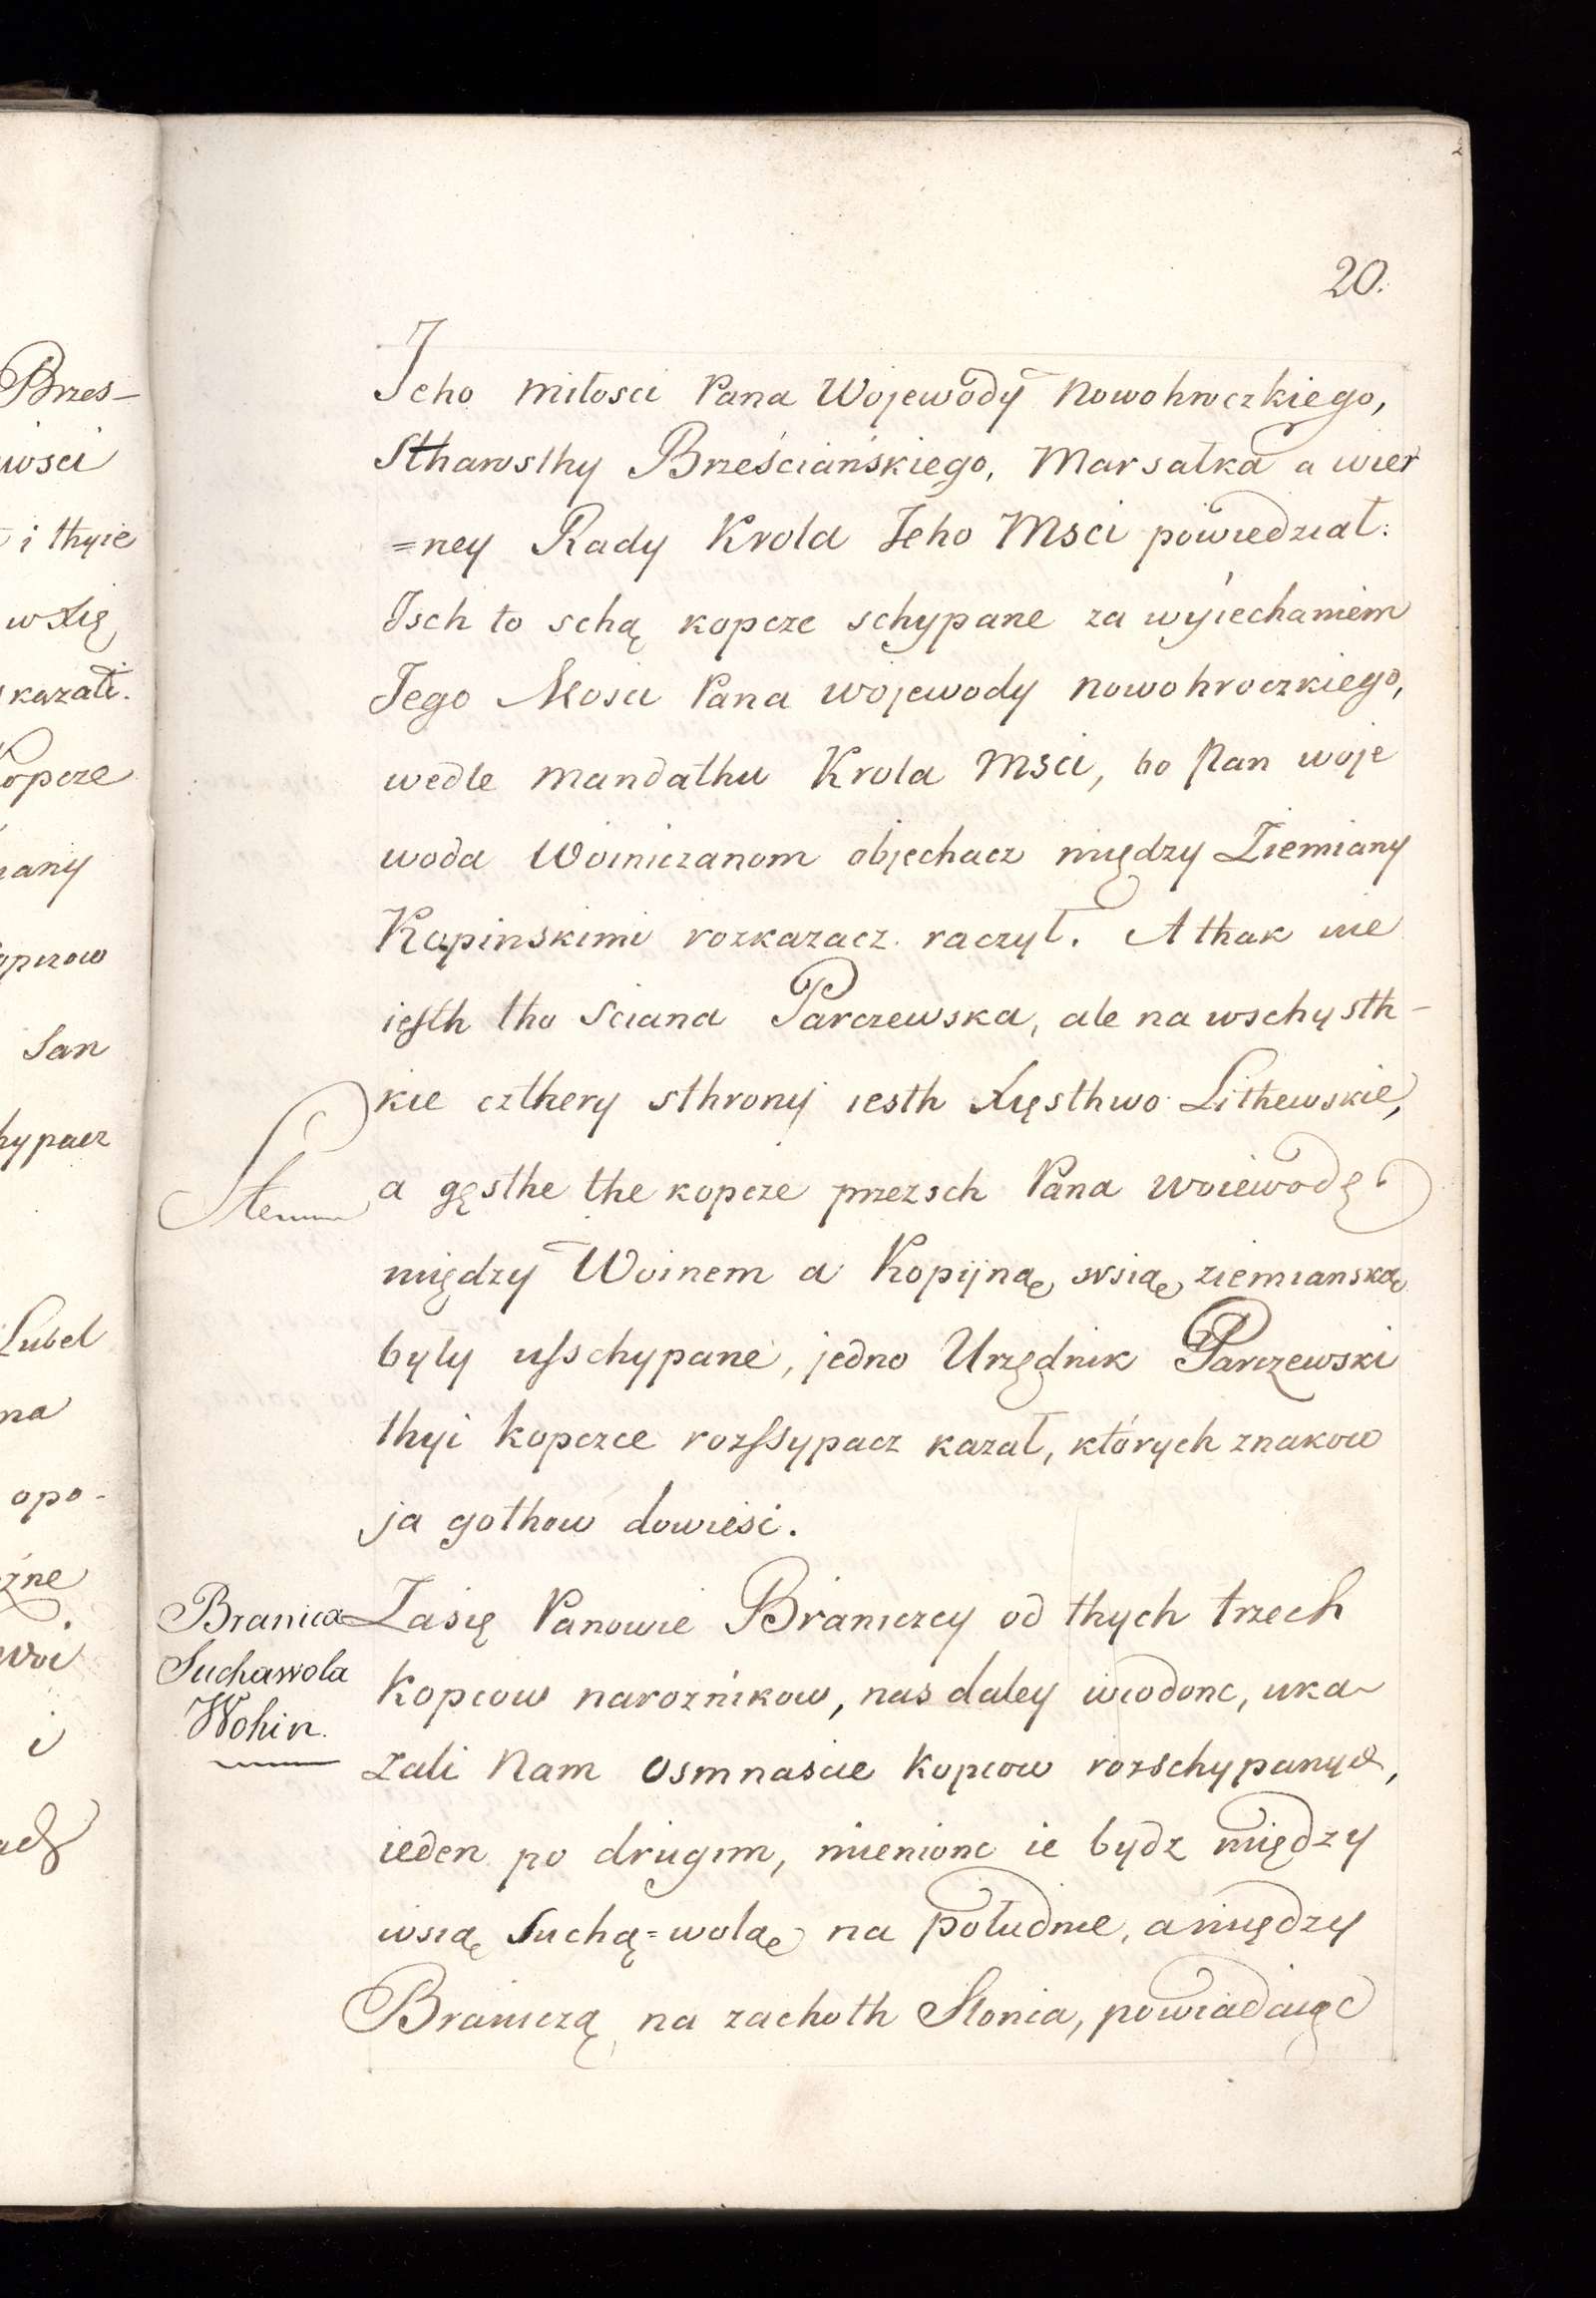 20.
Jeho miłosci Pana Wojewody Nowohroczkiego,
Stharosthy Brześciańskiego, Marsałka a wier
=ney Rady Krola Jeho Msci powiedział:
Isch to schą kopcze schypane za wyiechaniem
Jego Mosci Pana wojewody nowohroczkiego,
wedle mandathu Krola Msci, bo Pan woje
woda Woiniczanom objechacz między Ziemiany
Kopinskimi rozkazacz raczył. A thak nie
iesth tho Sciana Parczewska, ale na wschysth-
kie czthery sthrony iesth Xięsthwo Lithewskie,
a gęsthe the kopcze przezsch Pana woiewodę
między Woinem a Kopijną wsią ziemianską
były usschypane, jedno Urzędnik Parczewski
thyi kopcze rozssypacz kazał, których znakow
ja gothow dowiesc.
Branica
Suchawola
Wohin.
Zasię Panowie Braniczcy od thych trzech
Kopcow narożnikow, nas daley wiodonc, uka-
zali Nam osmnascie Kopcow rozschypanych,
ieden po drugim, mienionc ie bydz między
wsią Suchą=wolą na południe, a między
Braniczą na zachoth Slonca, powiadaiąc
Brzes-
iwsci
i thyie
w Xię
kazali.
Kopcze
San
hypacz
Lubel
na
opo-